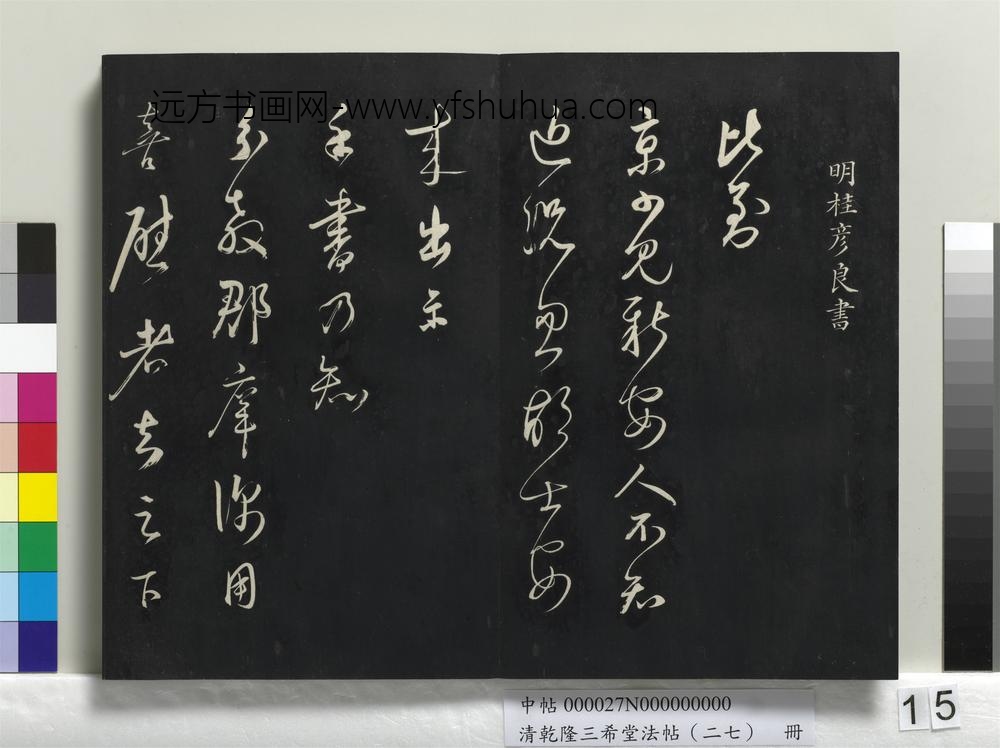 远方书画网-www.yfshuhua.com
明桂彦良書
比留
京少見新安人不知
近況忽胡士安
來出示
手書乃知
分教郡庠深用
喜慰 之下
中帖 000027N000000000
清乾隆三希堂法帖（二七） 冊
15